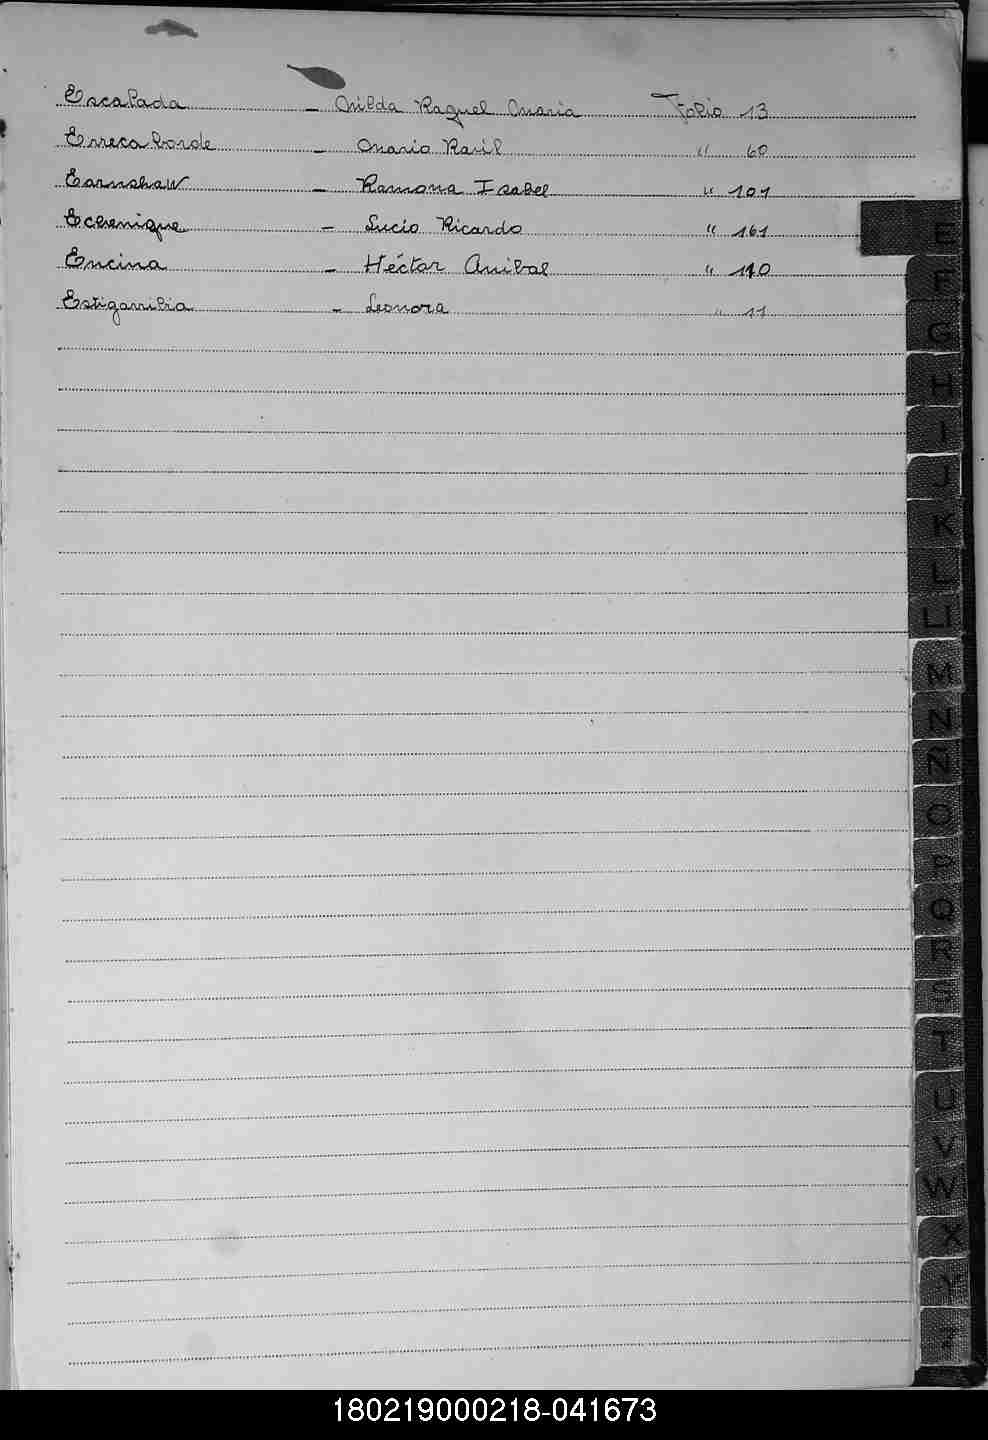 Escalada - Nilda Raquel Maria Folio 13
Errecaborde - Mario Raúl " 60
Earnshaw - Ramona Isabel " 101
Echenique - Lucio Ricardo " 161
Encina - Héctor Anibal " 110
Estigarribia - Leonora " 11
E
F
G
H
I
J
K
L
Ll
M
N
Ñ
O
P
Q
R
S
T
U
V
W
X
Y
Z
180219000218-041673